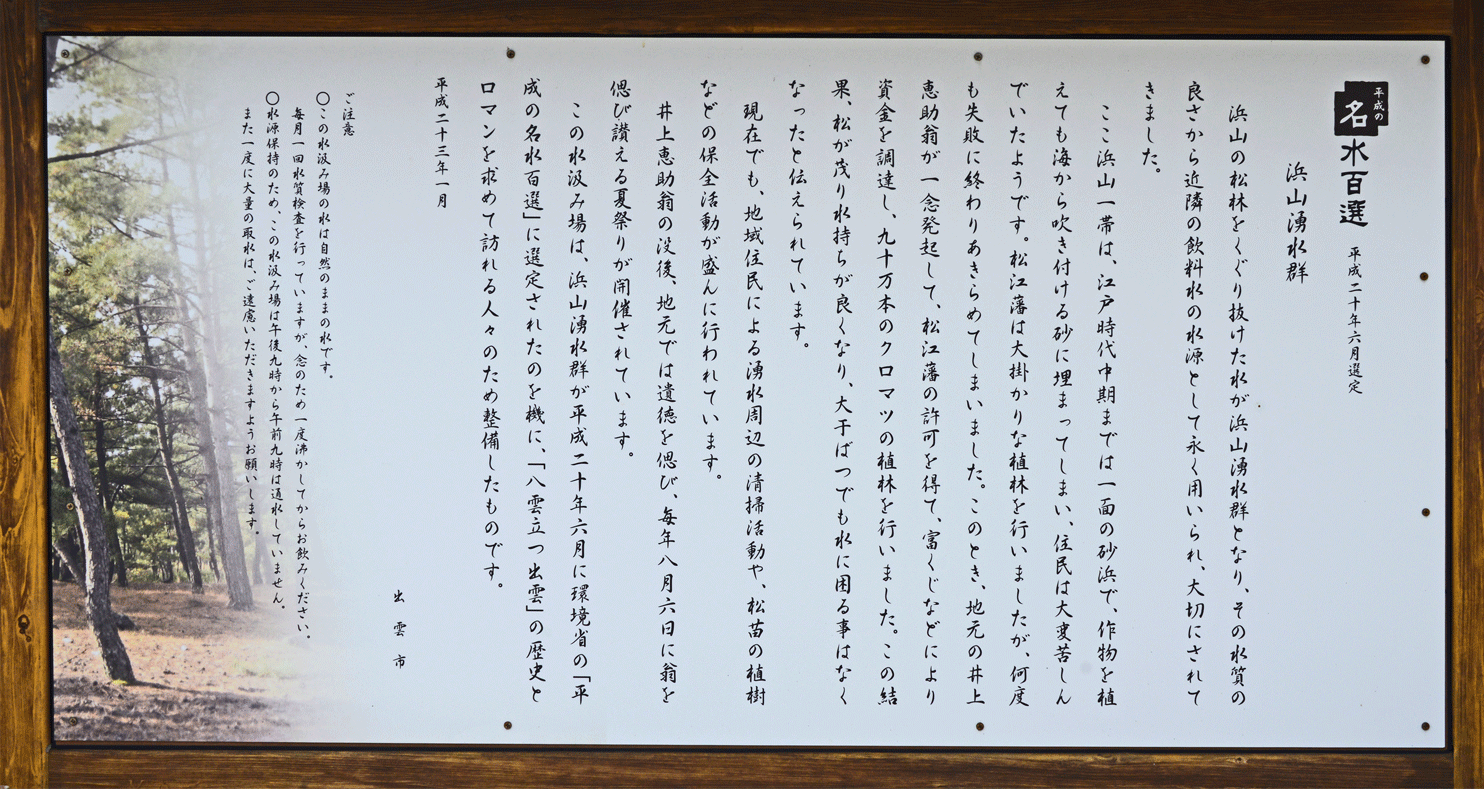 平成の
名水百選　平成二十年六月選定
浜山湧水群
浜山の松林をくぐり抜けた水が浜山湧水群となり、その水質の
良さから近隣の飲料水の水源として永く用いられ、大切にされて
きました。
ここ浜山一帯は、江戸時代中期までは一面の砂浜で、作物を植
えても海から吹き付ける砂に埋まってしまい、住民は大変苦しん
でいたようです。松江藩は大掛かりな植林を行いましたが、何度
も失敗に終わりあきらめてしまいました。このとき、地元の井上
恵助翁が一念発起して、松江藩の許可を得て、富くじなどにより
資金を調達し、九十万本のクロマツの植林を行いました。この結
果、松が茂り水持ちが良くなり、大干ばつでも水に困る事はなく
なったと伝えられています。
現在でも、地域住民による湧水周辺の清掃活動や、松苗の植樹
などの保全活動が盛んに行われています。
井上恵助翁の没後、地元では遺徳を偲び、毎年八月六日に翁を
偲び讃える夏祭りが開催されています。
この水汲み場は、浜山湧水群が平成二十年六月に環境省の「平
成の名水百選」に選定されたのを機に、「八雲立つ出雲」の歴史と
ロマンを求めて訪れる人々のため整備したものです。
平成二十三年一月
出雲市
ご注意
○この水汲み場の水は自然のままの水です。
毎月一回水質検査を行っていますが、念のため一度沸かしてからお飲みください。
○水源保持のため、この水汲み場は午後九時から午前九時は通水していません。
また一度に大量の取水は、ご遠慮いただきますようお願いします。